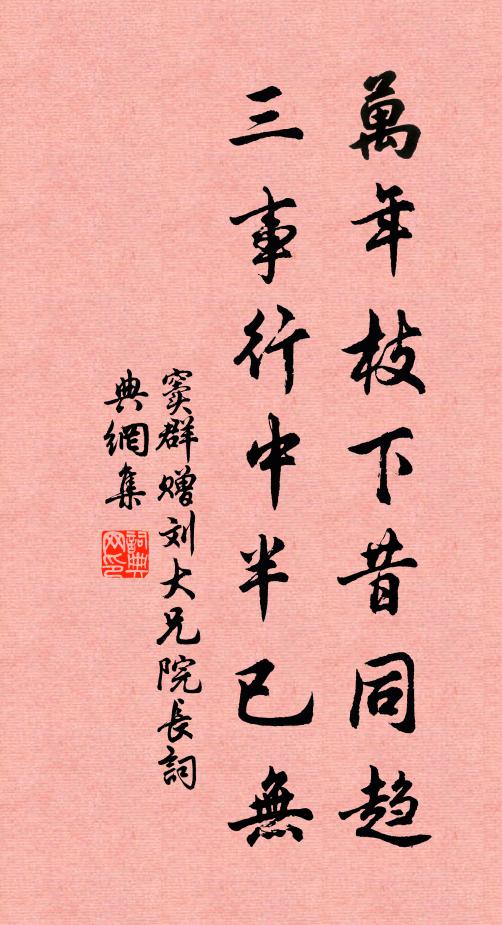 萬年枝下昔同趋
三事行中半已無
窦群赠刘大兄院長詞
典網集
詞典
网印